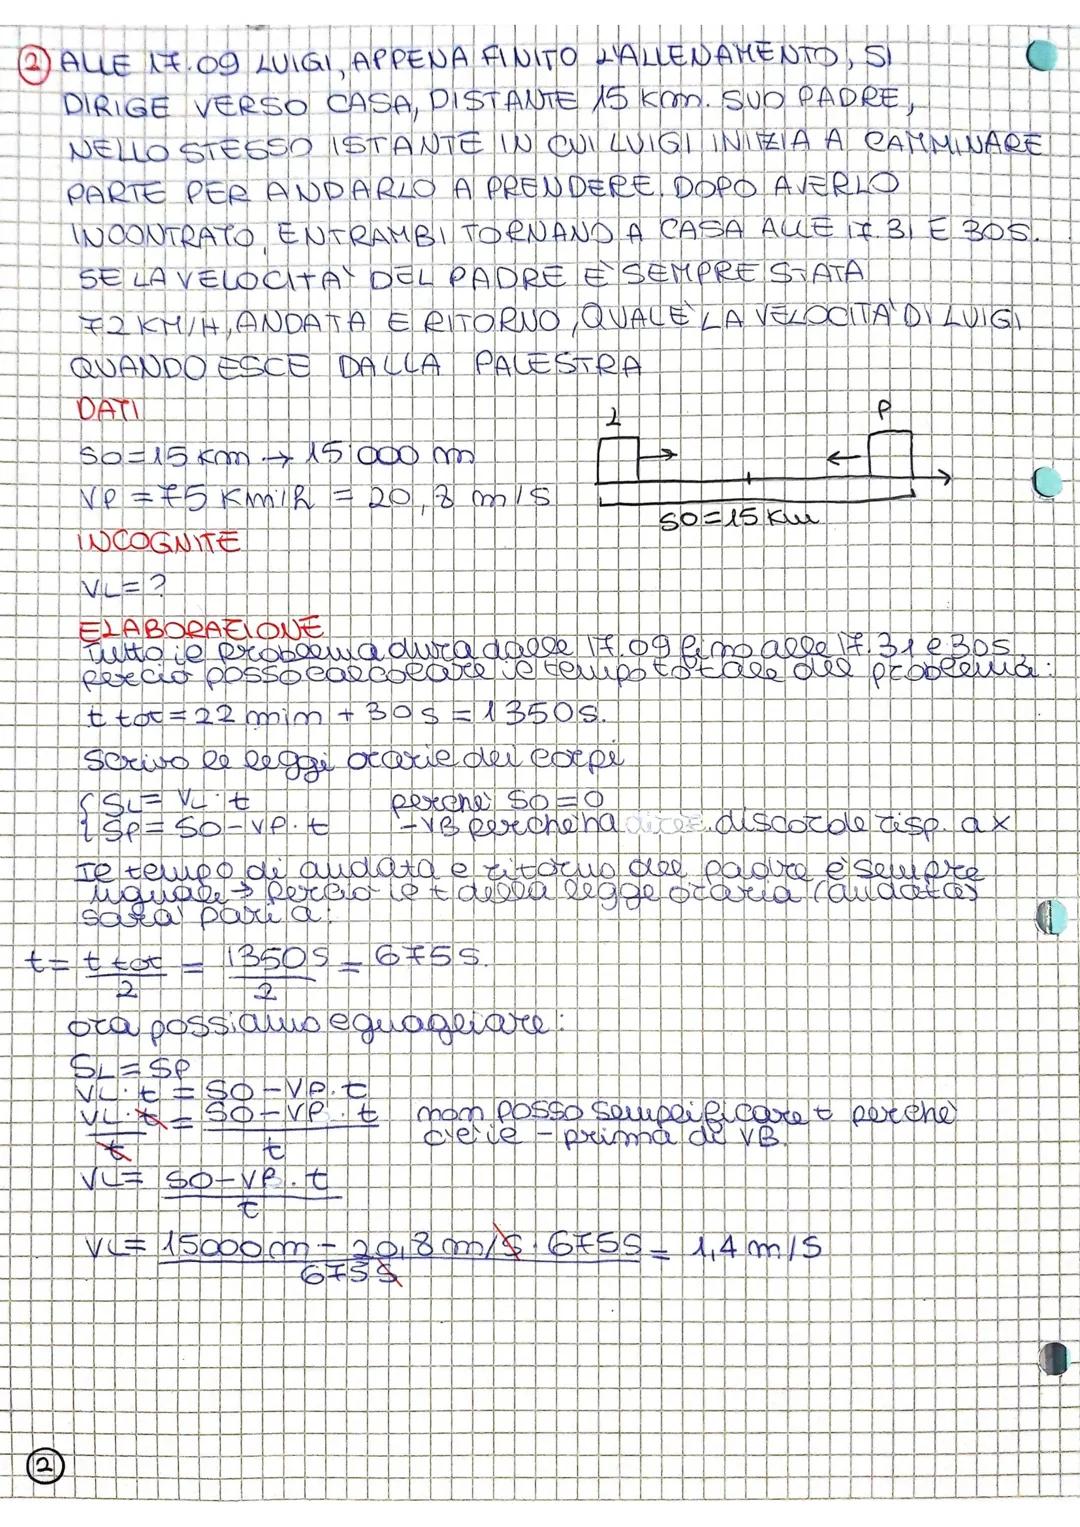 2 ALLE 17.09 LUIGI, APPENA FINITO L'ALLENAMENTO, SI
DIRIGE VERSO CASA, DISTANTE 15 Km. SUO PADRE,
NELLO STESSO ISTANTE IN CUI LUIGI INIZIA A CAMMINARE
PARTE PER ANDARLO A PRENDERE. DOPO AVERLO
INCONTRATO, ENTRAMBI TORNANO A CASA ALLE 17.31 E 30S.
SE LA VELOCITA' DEL PADRE E' SEMPRE STATA
72 KM/H, ANDATA E RITORNO, QUALE' LA VELOCITA' DI LUIGI
QUANDO ESCE DALLA PALESTRA
DATI
S0=15 Km → 15'000 m
VP = 75 Km/h = 20,8 m/s
L
P
S0=15 Km
INCOGNITE
VL=?
ELABORAZIONE
Tutto il problema dura dalle 17.09 fino alle 17.31 e 30s,
perciò posso calcolare il tempo totale del problema:
t tot = 22 min + 30s = 1350s.
Scrivo le leggi orarie dei corpi
{SL= VL·t perche' S0=0
SP= S0-VP·t -VB perche ha discorde risp. a x
Il tempo di andata e ritorno del padre e' sempre
uguale → perciò la t della legge oraria (andata)
sara' pari a:
t= t tot / 2 = 1350s / 2 = 675s.
ora possiamo eguagliare:
SL=SP
VL·t = S0-VP·t
VL·t / t = S0-VP·t / t non posso semplificare t perche'
c'è il - prima di VB.
VL= S0-VP·t / t
VL= 15000m - 20,8 m/s · 675s / 675s = 1,4 m/s
2